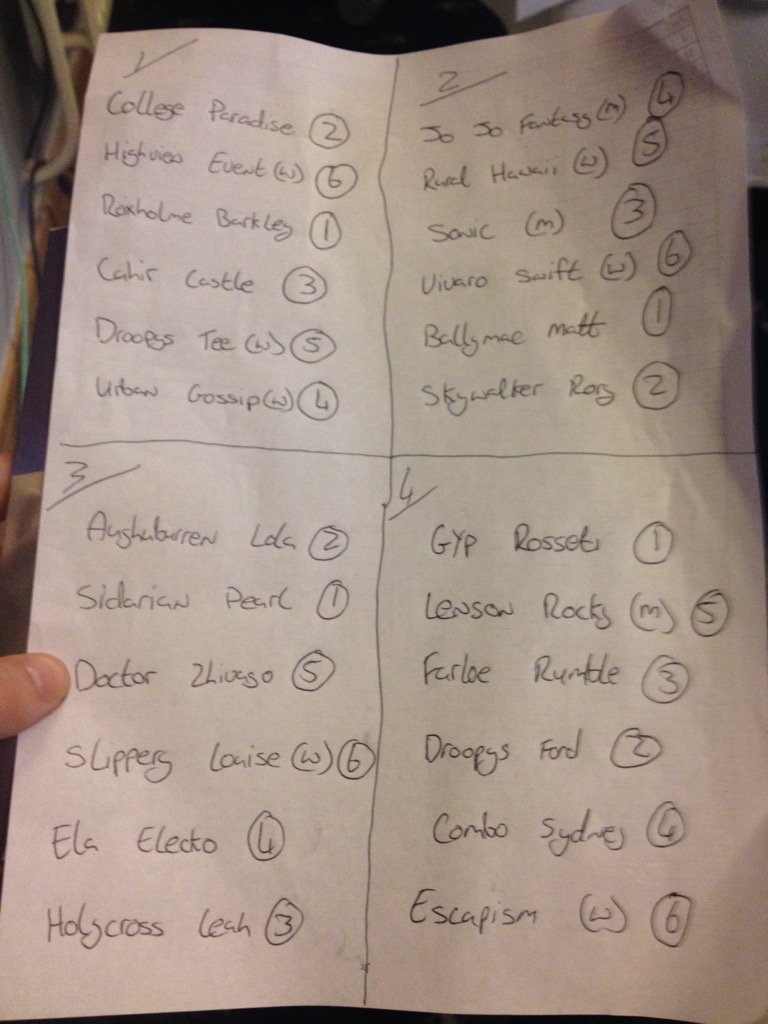 1
College Paradise 2
Highview Event (w) 6
Roxholme Barkley 1
Cahir Castle 3
Droopys Tee (w) 5
Urban Gossip (w) 4
2
Jo Jo Fantasy (m) 4
Rural Hawaii (w) 5
Sonic (m) 3
Vivaro Swift (w) 6
Ballymac Matt 1
Skywalker Rory 2
3
Lola 2
Sidarian Pearl 1
Doctor Zhivago 5
Slippery Louise (w) 6
Ela Electo 4
Holycross Leah 3
4
GYP Rosseti 1
Lenson Rocky (m) 5
Farloe Rumble 3
Droopys Ford 2
Combo Sydney 4
Escapism (w) 6